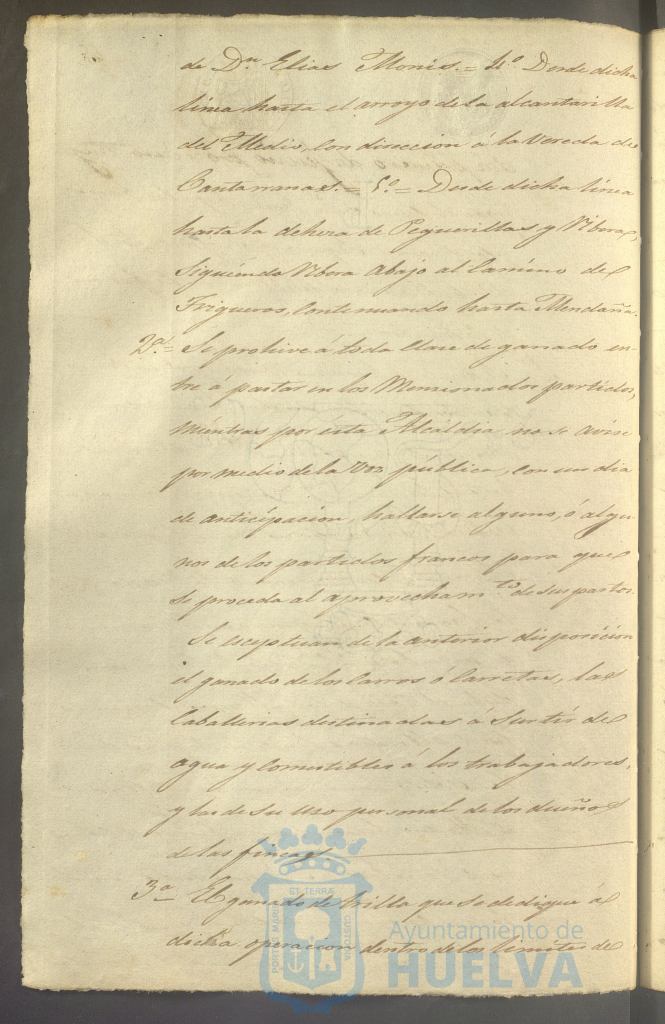 de Dⁿ Elias Monis.= 4º Desde dicha
linea hasta el arroyo de la alcantarilla
del Medio, con direccion á la Vereda de
Cantarranas.= 5º.= Desde dicha linea
hasta la dehesa de Peguerillas y Ribera,
siguiendo Ribera abajo al Camino de
Trigueros, continuando hasta Mendaña.
2ª= Se prohive á toda clase de ganado en-
tre á pastar en los mensionados partidos,
mientras por esta Alcaldia no se avise
por medio de la voz pública, con un dia
de anticipacion, hallarse alguno, ó algu-
nos de los partidos francos para que
se proceda al aprovechamᵗᵒ de sus pastos.
Se esceptuan de la anterior disposicion
el ganado de los Carros ó Carretas, las
Caballerias destinadas á surtir de
agua y comestibles á los trabajadores,
y las de su uso personal de los dueños
de las fincas.
3ª El ganado de trilla que se dedique á
dicha operacion dentro de los limites de
PORTUS MARIS ET TERRAE CUSTODIA
Ayuntamiento de
HUELVA